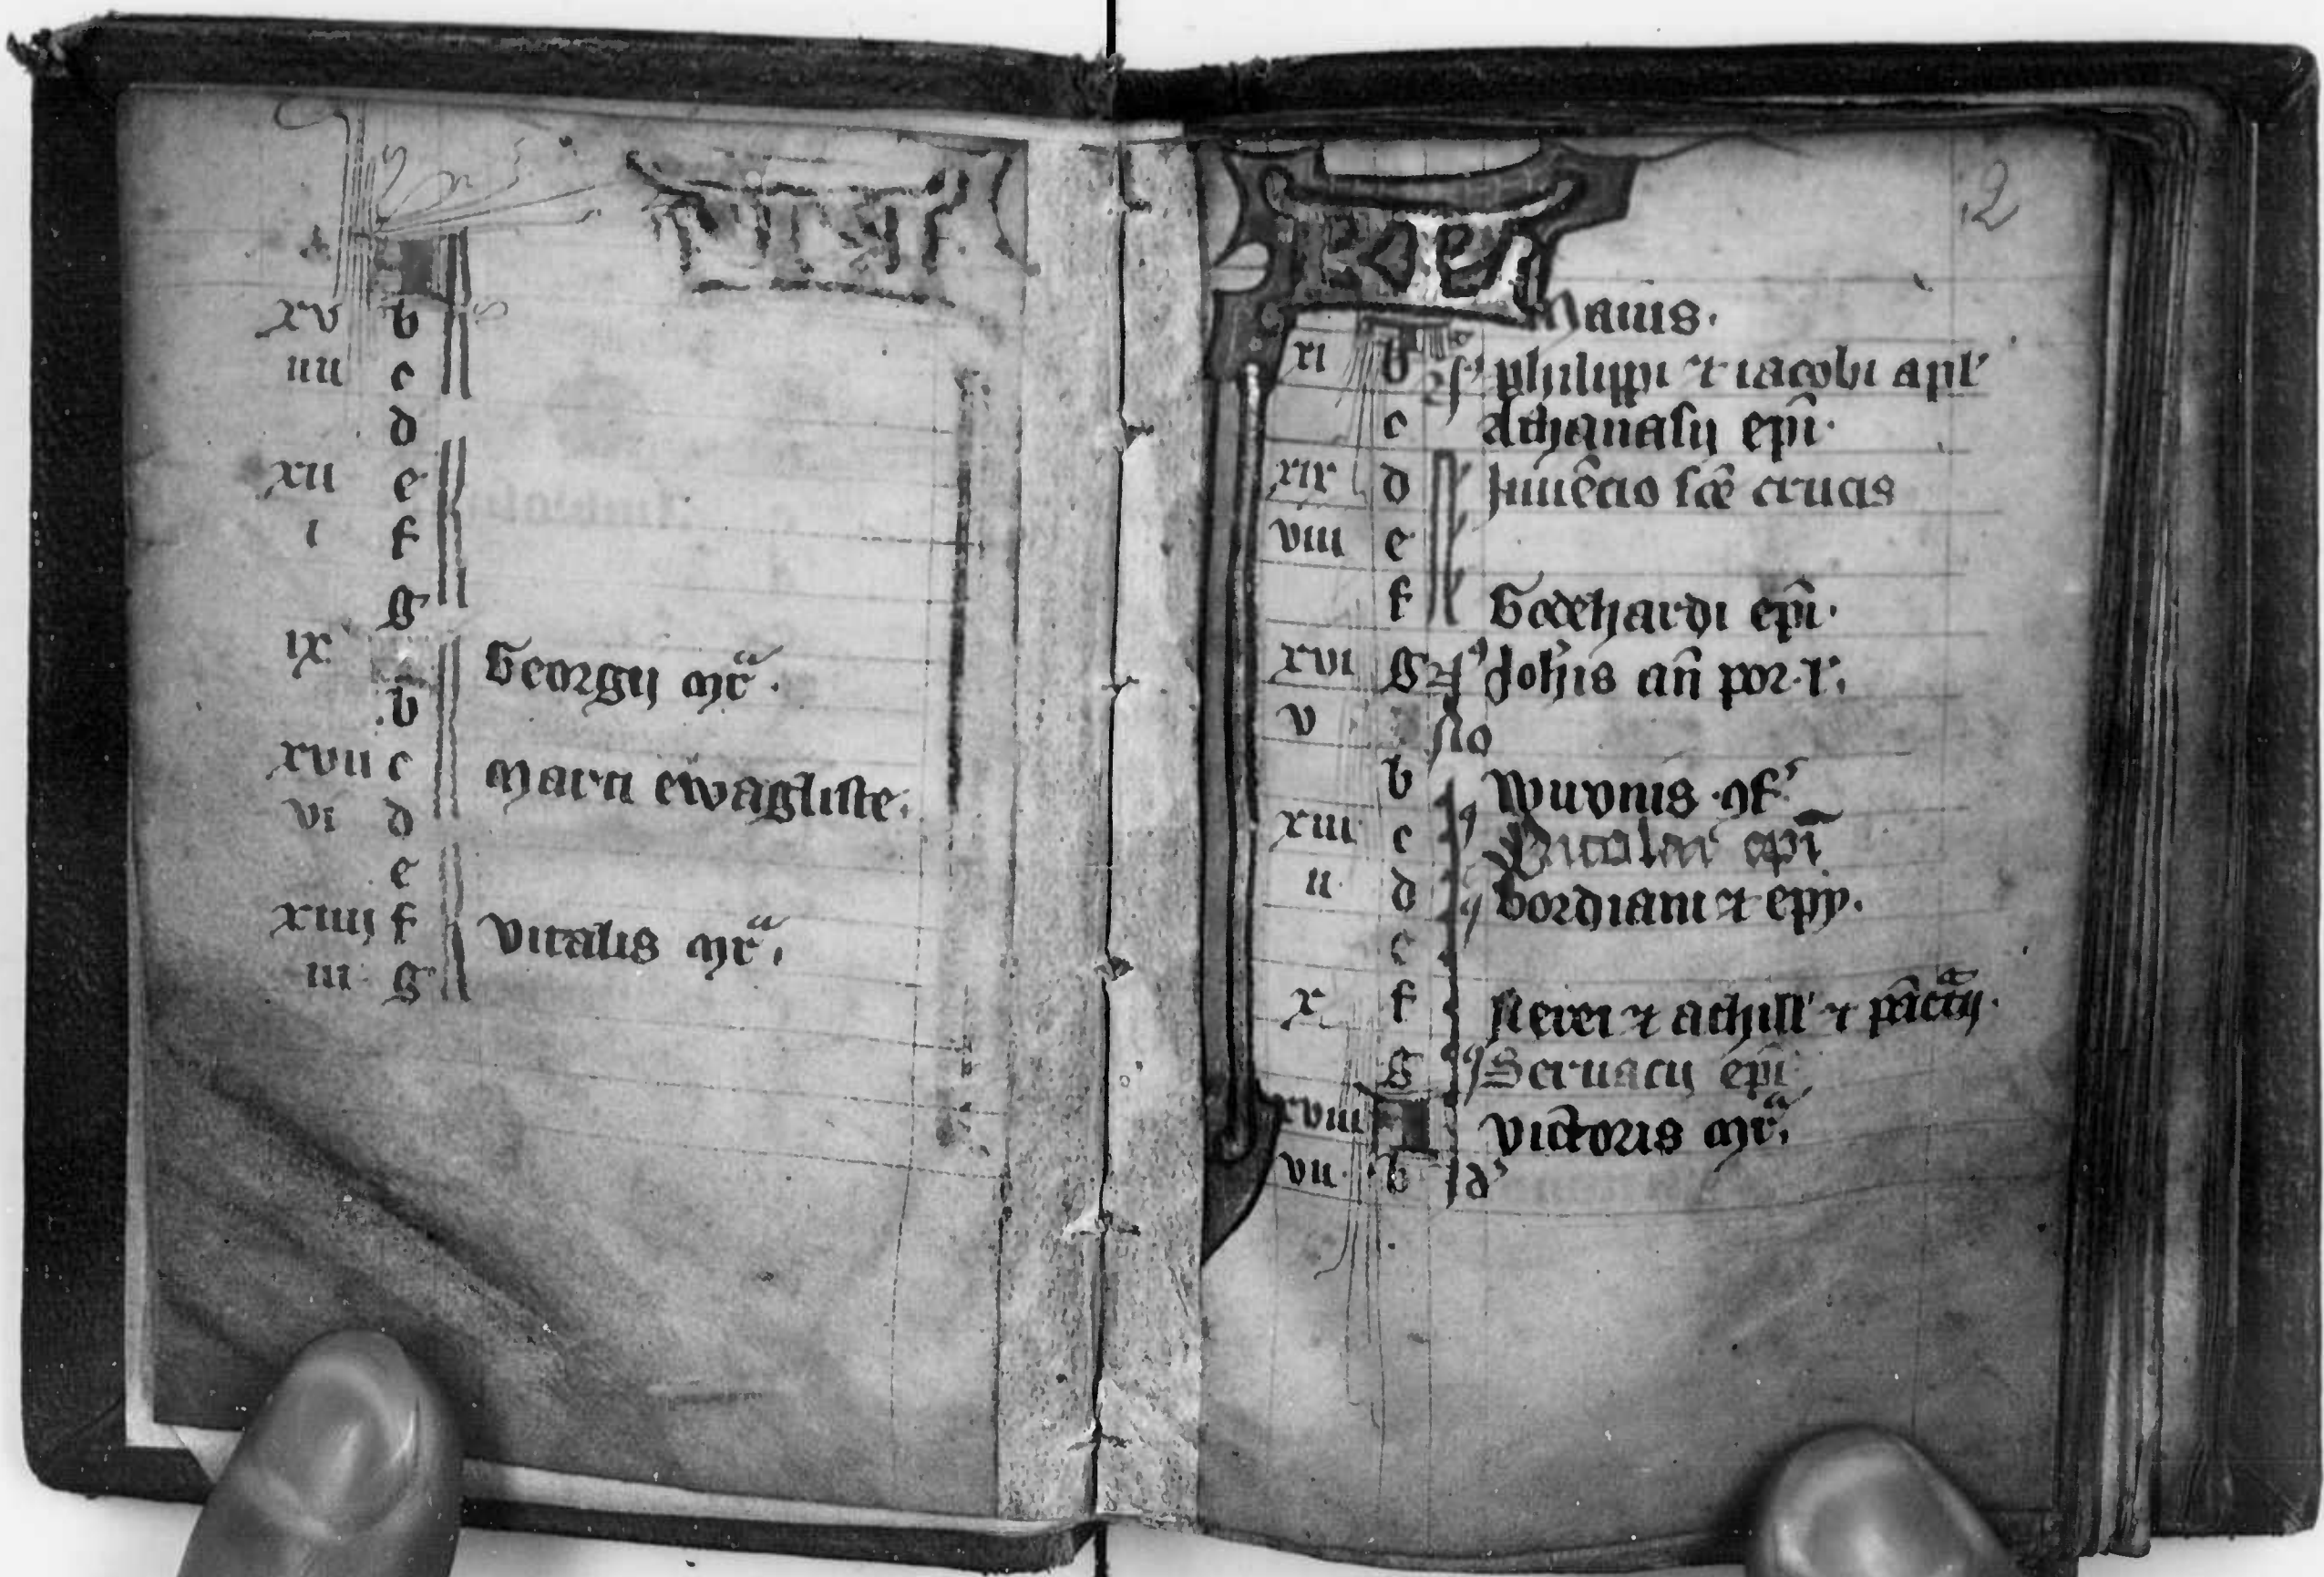 xv b
iiii c
d
xii e
i f
g
ix Georgii mr̃.
b
xvii c Marci ewagliste.
vi d
e
xiiii f Vitalis mr̃.
iii g
2
Maius.
xi b Philippi et iacobi apl'
c Athanasij ep̃i.
xix d Inuẽcio scẽ crucis
viii e
f Godehardi ep̃i.
xvi g Joh̃is an̄ por. l'.
v
b Wuonis ꝯf'
xiii c Nicolai ep̃i
ii d Gordiani et epy.
e
x f Nerei et achill' et pãcr̃ij.
g Seruacij ep̃i
xviii Victoris mr̃.
vii b d'